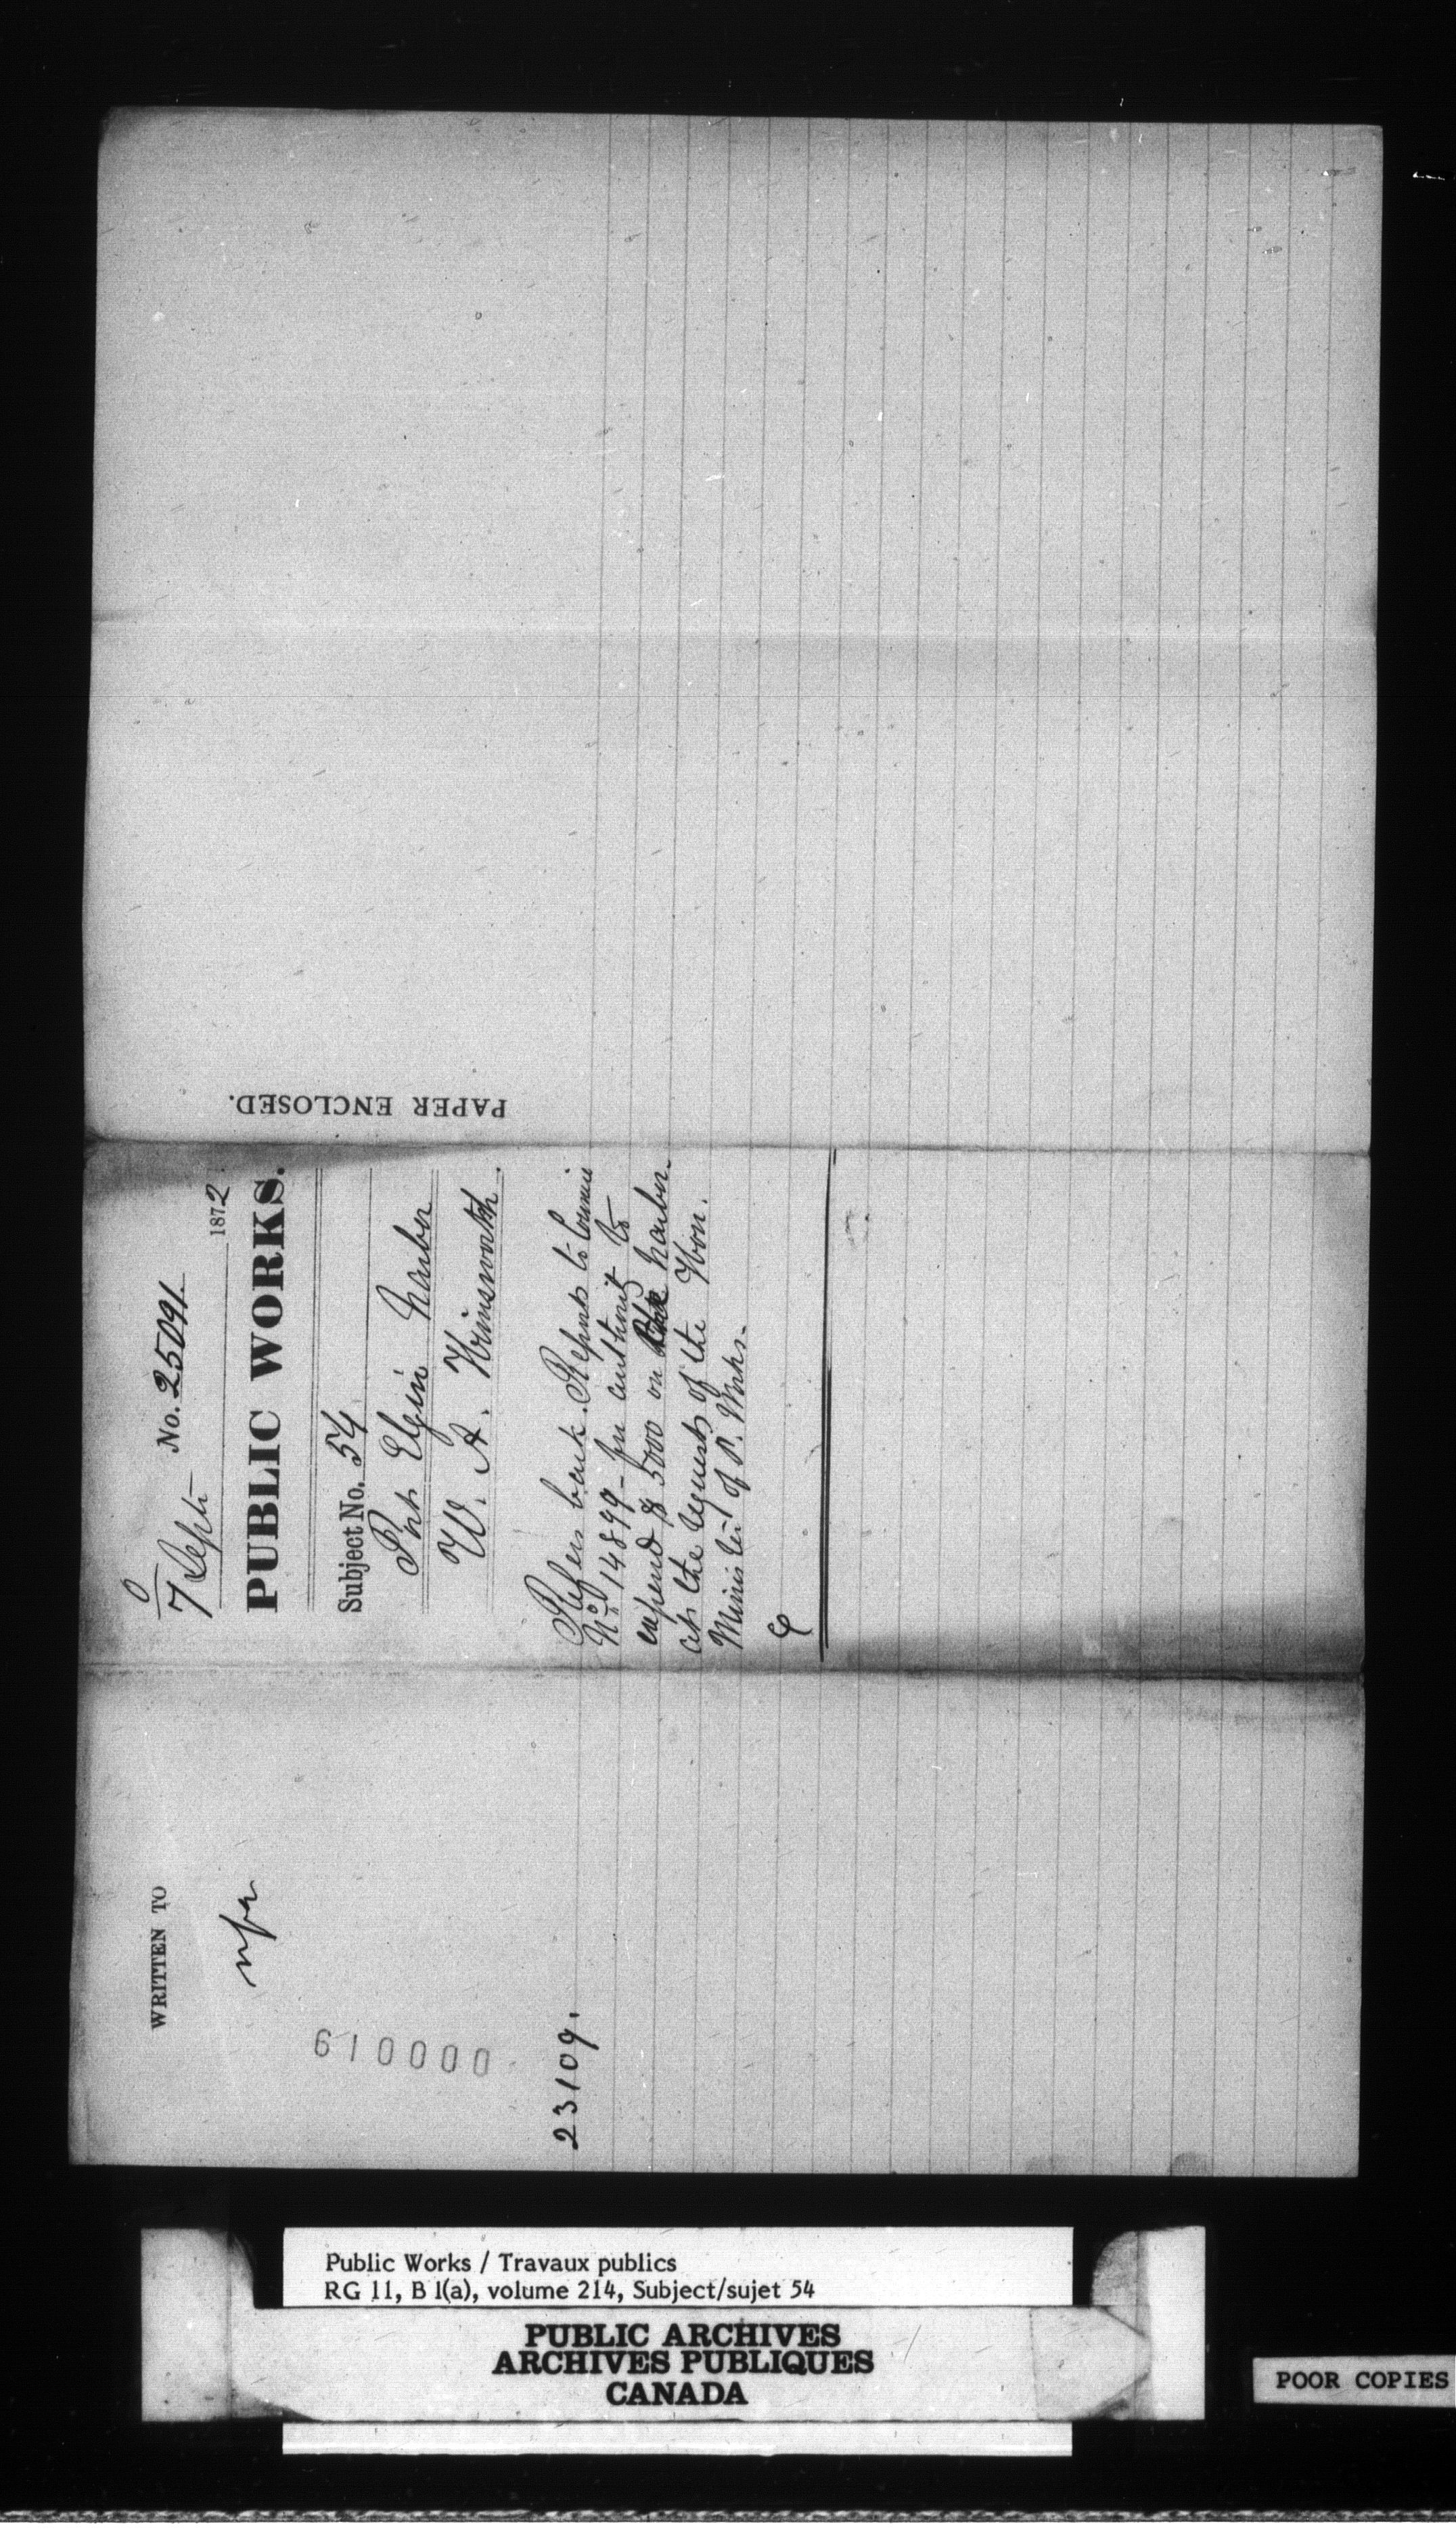 7 Septr No. 25091.
1872
PUBLIC WORKS.
Subject No. 54
Port Elgin Harbor
W. A. Himsworth.
Refers back. Reports to Council
No. 14899 - for authority to
expend $5000 on the harbor.
at the request of the Hon.
Minister of P. Works.
PAPER ENCLOSED.
WRITTEN TO
nfa
610000
23109.
Public Works / Travaux publics
RG 11, B 1(a), volume 214, Subject/sujet 54
PUBLIC ARCHIVES
ARCHIVES PUBLIQUES
CANADA
POOR COPIES